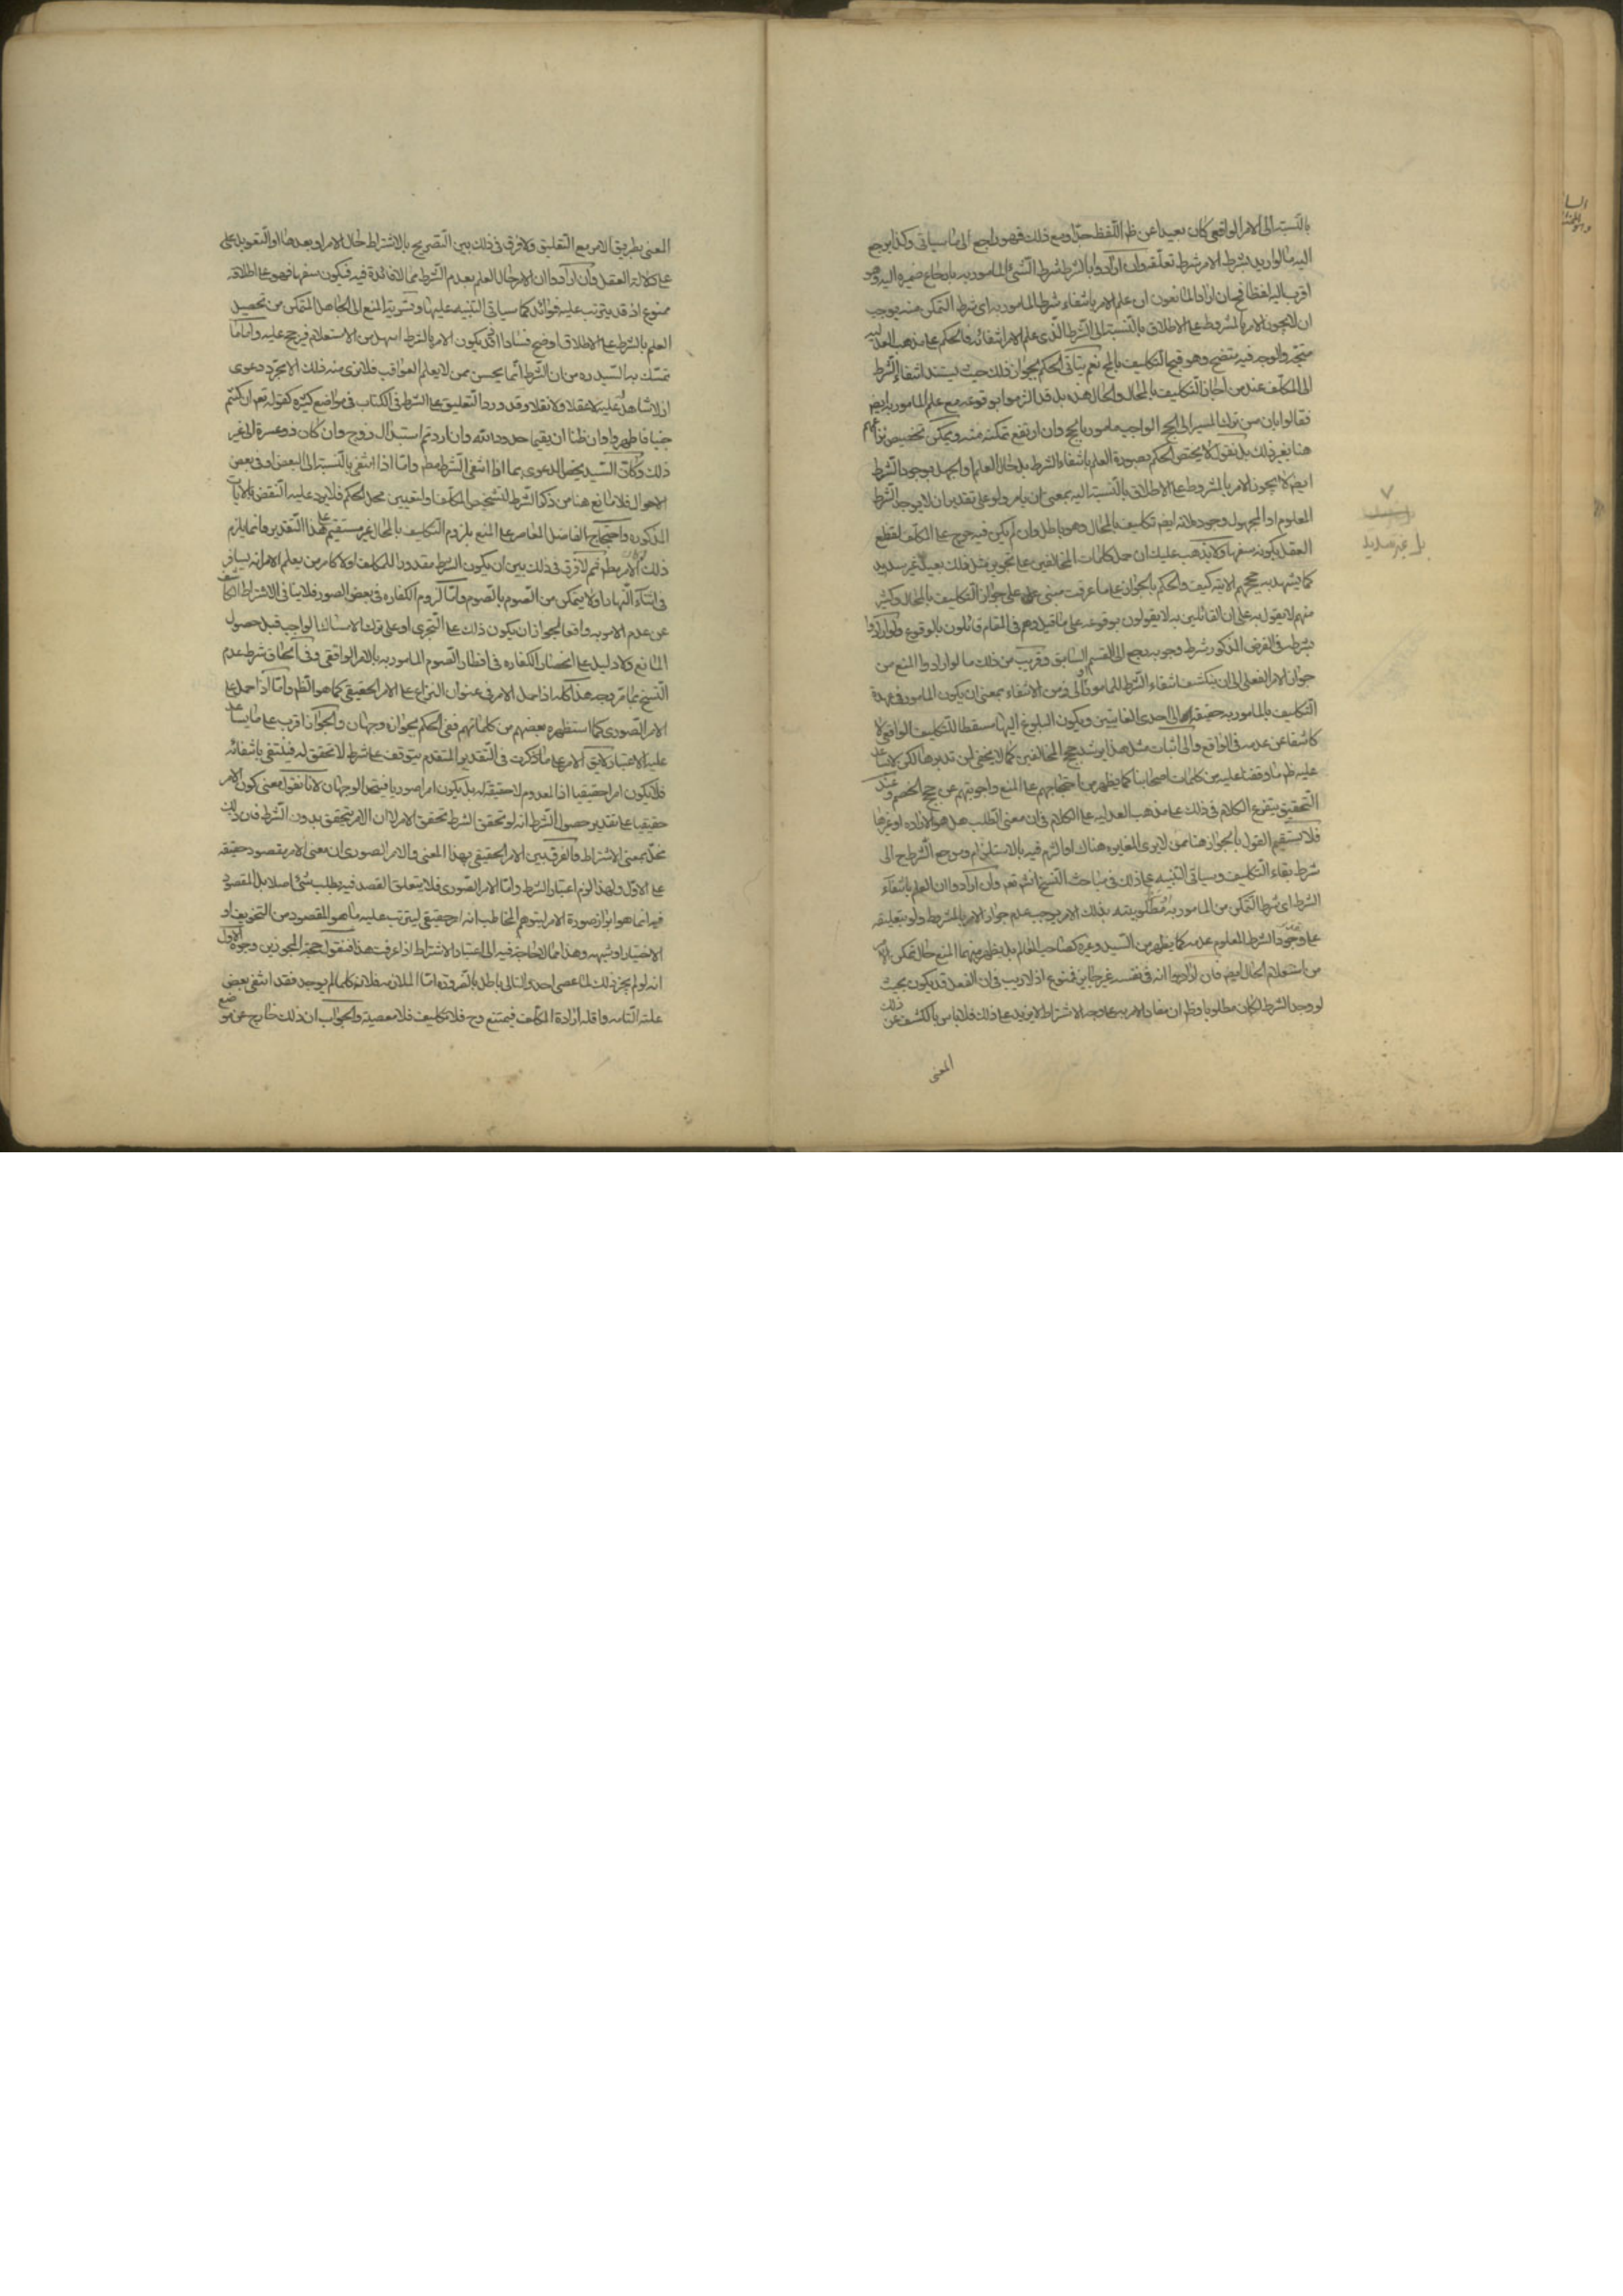 بالنسبة الى الامر الواقعى كان بعيدا عن ظم اللفظ جدا ومع ذلك فهو راجع الى ما سياتى وكذا يرجع
اليه ما لو اريد بشرط الامر شرط تعلقه وان ارادوا بالشرط شرط الشئ المامور به بارجاع ضميره اليه وهو
اقرب اليه لفظا فح ان اراد المانعون ان علم الامر بانتفاء شرط المامور به اى شرط التمكن منه يوجب
ان لا يجوز الامر بالمشروط على الاطلاق بالنسبة الى الشرط الذى علم الامر انتفائه فالحكم على مذهب العدلية
متجه والوجه فيه متضح وهو قبح التكليف بالمح نعم يتاتى الحكم بجواز ذلك حيث يستند انتفاء الشرط
الى المكلف عند من اجاز التكليف بالمحال والحال هذه بل قد التزموا بوقوعه مع علم المامور به ايض
فقالوا بان من ترك المسير الى الحج الواجب مامور بالحج وان ارتفع تمكنه منه ويمكن تخصيص نزاعهم
هنا بغير ذلك بل نقول لا يختص الحكم بصورة العلم بانتفاء الشرط بل حال العلم والجهل بوجود الشرط
ايض لا يجوز الامر بالمشروط على الاطلاق بالنسبة اليه بمعنى ان يامر ولو على تقدير ان لا يوجد الشرط
المعلوم او المجهول وجوده لانه ايض تكليف بالمحال وهو باطل وان لم يكن فيه حرج على المكلف لقطع
العقل بكونه سفها ولا يذهب عليك ان حمل كلمات المخالفين على تجويز مثل ذلك بعيد غير سديد
كما يشهد به حججهم الاتية كيف والحكم بالجواز على ما عرفت مبنى على جواز التكليف بالمحال وكثير
منهم لا يقول به على ان القائلين به لا يقولون بوقوعه على ما قيل وهم فى المقام قائلون بالوقوع ولو ارادوا
بشرطه فى الفرض المذكور شرط وجوبه رجع الى القسم السابق وقريب من ذلك ما لو ارادوا المنع من
جواز الامر الفعلى الى ان ينكشف انتفاء الشرط للمامور او الى زمن الانتفاء بمعنى ان يكون المامور فى عهدة
التكليف بالمامور به حقيقة الى احدى الغايتين ويكون البلوغ اليها مسقطا للتكليف الواقعى لا
كاشفا عن عدمه فى الواقع والى اثبات مثل هذا يرشد حجج المخالفين كما لا يخفى لمن تدبرها لكن لا يساعد
عليه ظم ما وقفنا عليه من كلمات اصحابنا كما يظهر من احتجاجهم على المنع واجوبتهم عن حجج الخصم وعند
التحقيق يتفرع الكلام فى ذلك على مذهب العدلية على الكلام فى ان معنى الطلب هل هو الارادة او غيرها
فلا يستقيم القول بالجواز هنا ممن لا يرى المغايره هناك او التزم فيه بالاستلزام ومرجع الشرط ح الى
شرط بقاء التكليف وسياتى التنبيه على ذلك فى مباحث النسخ انش تع وان ارادوا ان العلم بانتفاء
الشرط اى شرط التمكن من المامور به او مطلوبيته بذلك الامر يوجب عدم جواز الامر بالمشروط ولو بتعليقه
على وجود الشرط المعلوم عدمه كما يظهر من السيد وغيره كصاحب المعالم بل يظهر منهما المنع حال تمكن الامر
من استعلام الحال ايض فان ارادوا انه فى نفسه غير جايز فممنوع اذ لا ريب فى ان الفعل قد يكون بحيث
لو وجد الشرط لكان مطلوبا وظم ان مفاد الامر به على وجه الاشتراط لا يزيد على ذلك فلا باس بالكشف عن ذلك
المعنى
بل غير سديد
المعنى بطريق الامر مع التعليق ولا فرق فى ذلك بين التصريح بالاشتراط حال الامر او بعدها او التعويل على
على دلالة العقل وان ارادوا ان الامر حال العلم بعدم الشرط مما لا فائدة فيه فيكون سفها فهو على اطلاقه
ممنوع اذ قد يترتب عليه فوائد كما سياتى التنبيه عليها وتسرية المنع الى الجاهل المتمكن من تحصيل
العلم بالشرط على الاطلاق اوضح فسادا اذ قد يكون الامر بالشرط اسهل من الاستعلام فيرجح عليه واما ما
تمسك به السيد ره من ان الشرط انما يحسن ممن لا يعلم العواقب فلا نرى منه ذلك الا مجرد دعوى
اذ لا شاهد عليه لا عقلا ولا نقلا وقد ورد التعليق على الشرط فى الكتاب فى مواضع كثيره كقوله تع وان كنتم
جنبا فاطهروا وان ظنا ان يقيما حدود الله وان اردتم استبدال زوج وان كان ذو عسرة الى غير
ذلك وكان السيد يخص الدعوى بما اذا انتفى الشرط مطم واما اذا انتفى بالنسبة الى البعض او فى بعض
الاحوال فلا مانع هنا من ذكر الشرط لتشخيص المكلف او لتعيين محل الحكم فلا يرد عليه النقض بالايات
المذكوره واحتجاج الفاضل المعاصر على المنع بلزوم التكليف بالمحال غير مستقيم على هذا التقدير وانما يلزم
ذلك لو كان الامر مطم ثم لا فرق فى ذلك بين ان يكون الشرط مقدورا للمكلف اولا كامر من يعلم الامر انه يسافر
فى اثناء النهار او لا يتمكن من الصوم بالصوم واما لزوم الكفاره فى بعض الصور فلا ينافى الاشتراط الكاشف
عن عدم الامر به واقعا لجواز ان يكون ذلك على التجرى او على ترك الامساك الواجب قبل حصول
المانع ولا دليل على انحصار الكفاره فى افطار الصوم المامور به بالامر الواقعى وفى الحاق شرط عدم
النسخ بما مر وجه هذا كله اذا حمل الامر فى عنوان النزاع على الامر الحقيقى كما هو الظم واما اذا حمل على
الامر الصورى كما استظهره بعضهم من كلماتهم ففى الحكم بجوازه وجهان والجواز اقرب على ما يساعد
عليه الاعتبار لا يق الامر على ما ذكرت فى التقدير المتقدم يتوقف على شرط لا تحقق له فينتفى بانتفائه
فلا يكون امرا حقيقيا اذ المعدوم لا حقيقة له بل يكون امرا صوريا فيتحد الوجهان لانا نقول معنى كون الامر
حقيقيا على تقدير حصول الشرط انه لو تحقق الشرط تحقق الامر لا ان الامر يتحقق بدون الشرط فان ذلك
مخل بمعنى الاشتراط والفرق بين الامر الحقيقى بهذا المعنى والامر الصورى ان معنى الامر يقصود حقيقة
على الاول ولهذا لزم اعتبار الشرط واما الامر الصورى فلا يتعلق القصد فيه بطلب شئ اصلا بل المقصود
فيه انما هو ابراز صورة الامر ليتوهم المخاطب انه امر حقيقى ليترتب عليه ما هو المقصود من التخويف او
الاختبار او شبهه وهذا مما لا حاجة فيه الى اعتبار الاشتراط اذا عرفت هذا فنقول حجة المجوزين وجوه الاول
انه لو لم يجز ذلك لما عصى احد والتالى باطل بالضرورة اما الملازمه فلانه كلما لم يوجد فقد انتفى بعض
علته التامه واقله ارادة المكلف فيمتنع وح فلا تكليف فلا معصية والجواب ان ذلك خارج عن موضع